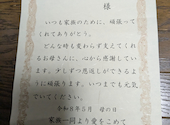 様
いつも家族のために、頑張って
くれてありがとう。
どんな時も変わらず支えてくれ
るお母さんに、心から感謝してい
ます。少しずつ恩返しができるよう
に頑張ります。いつまでも元気
でいてください。
令和6年5月 母の日
家族一同より愛をこめて